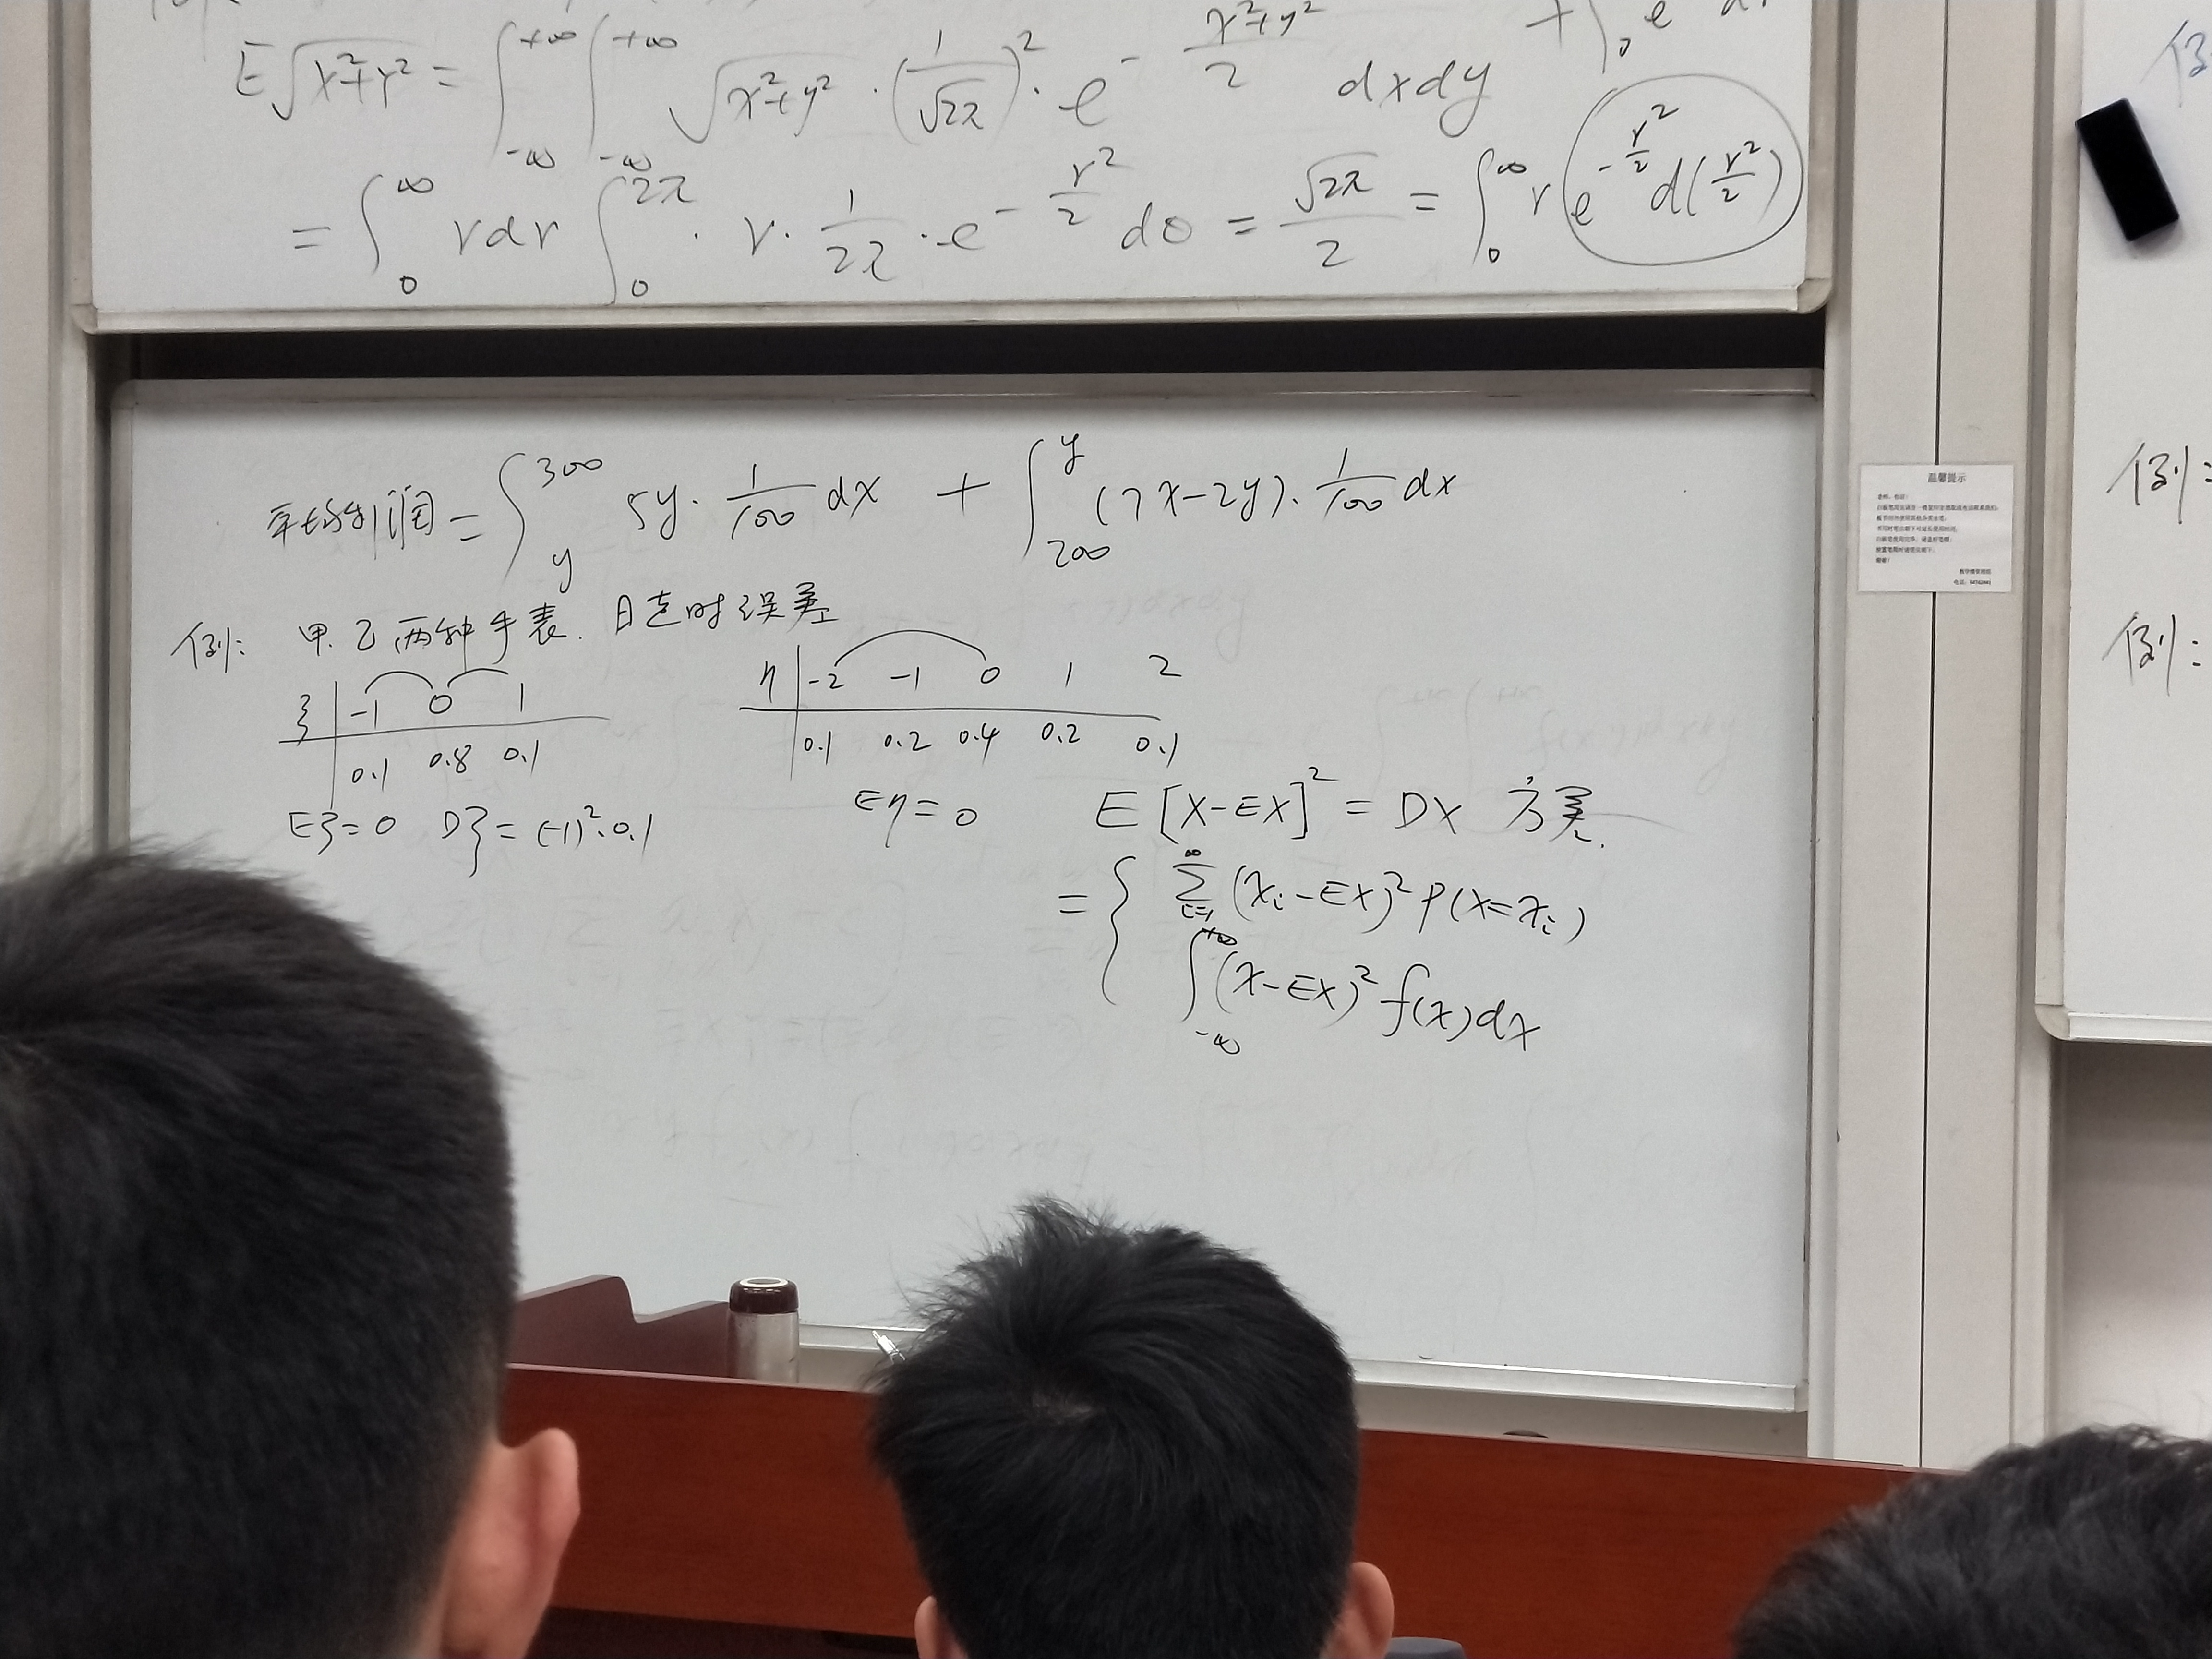 E√(X²+Y²) = ∫_{-∞}^{+∞} ∫_{-∞}^{+∞} √(x²+y²) · (1/√(2π))² · e^{-(x²+y²)/2} dxdy
= ∫_0^∞ r dr ∫_0^{2π} · r · 1/(2π) · e^{-r²/2} dθ = √(2π)/2 = ∫_0^∞ r e^{-r²/2} d(r²/2)
平均利润 = ∫_y^{300} 5y · 1/100 dx + ∫_{200}^y (7x-2y) · 1/100 dx
例: 甲.乙两种手表. 日走时误差
ξ | -1 0 1
0.1 0.8 0.1
η | -2 -1 0 1 2
0.1 0.2 0.4 0.2 0.1
Eξ=0 Dξ = (-1)²·0.1
Eη=0
E[X-EX]² = DX 方差.
= { ∑_{i=1}^∞ (x_i-EX)² P(X=x_i)
∫_{-∞}^{+∞} (x-EX)² f(x)dx
温馨提示
例:
例: